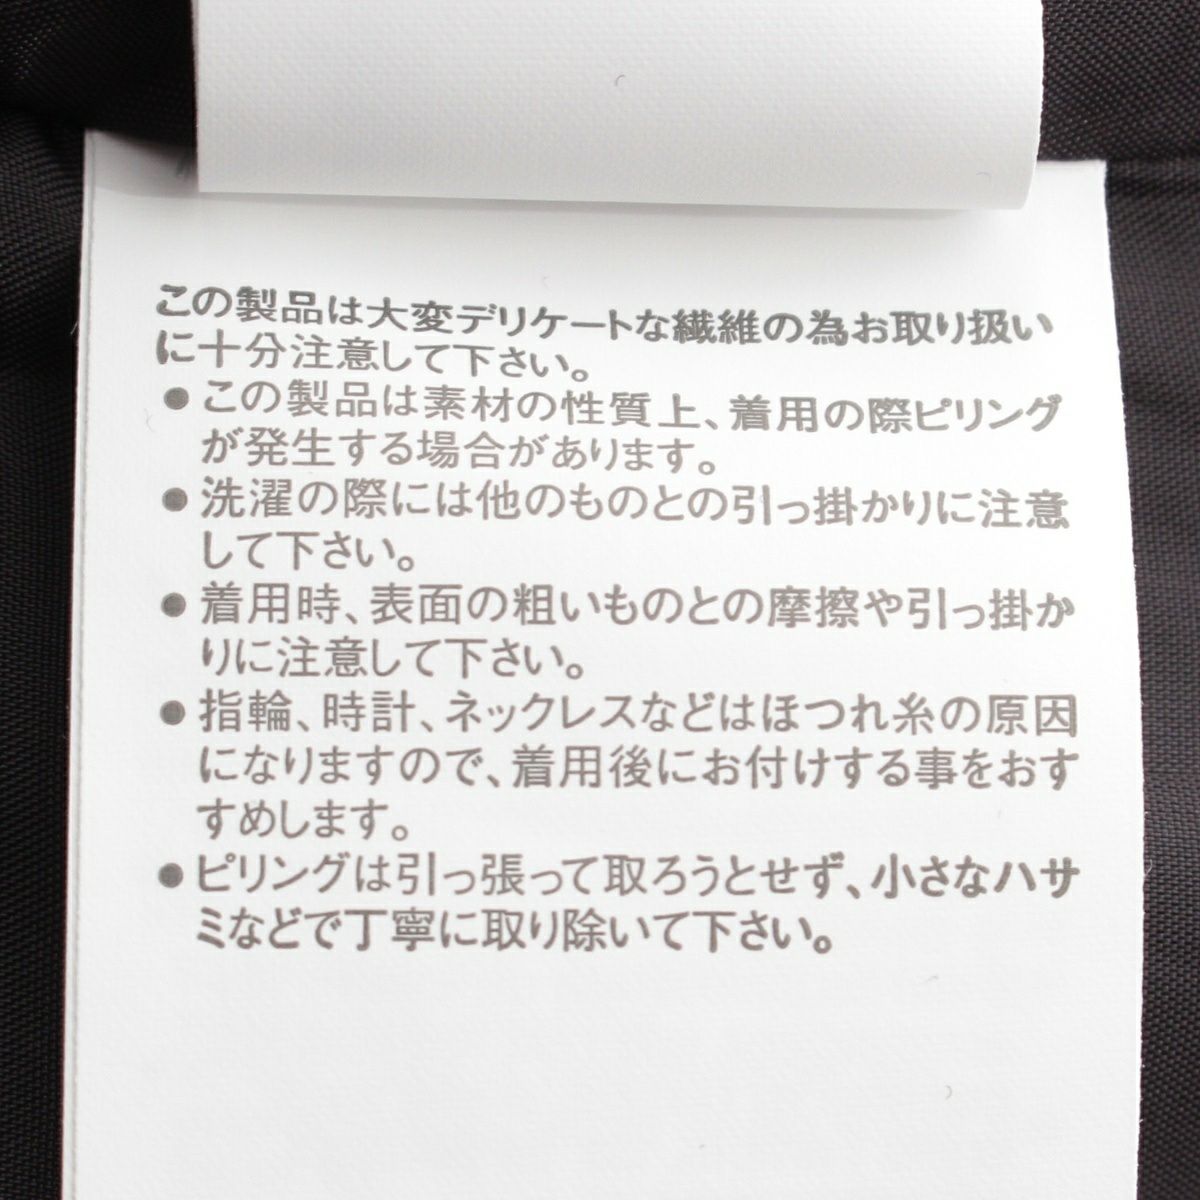 この製品は大変デリケートな繊維の為お取り扱い
に十分注意して下さい。
●この製品は素材の性質上、着用の際ピリング
が発生する場合があります。
●洗濯の際には他のものとの引っ掛かりに注意
して下さい。
●着用時、表面の粗いものとの摩擦や引っ掛か
りに注意して下さい。
●指輪、時計、ネックレスなどはほつれ糸の原因
になりますので、着用後にお付けする事をおす
すめします。
●ピリングは引っ張って取ろうとせず、小さなハサ
ミなどで丁寧に取り除いて下さい。